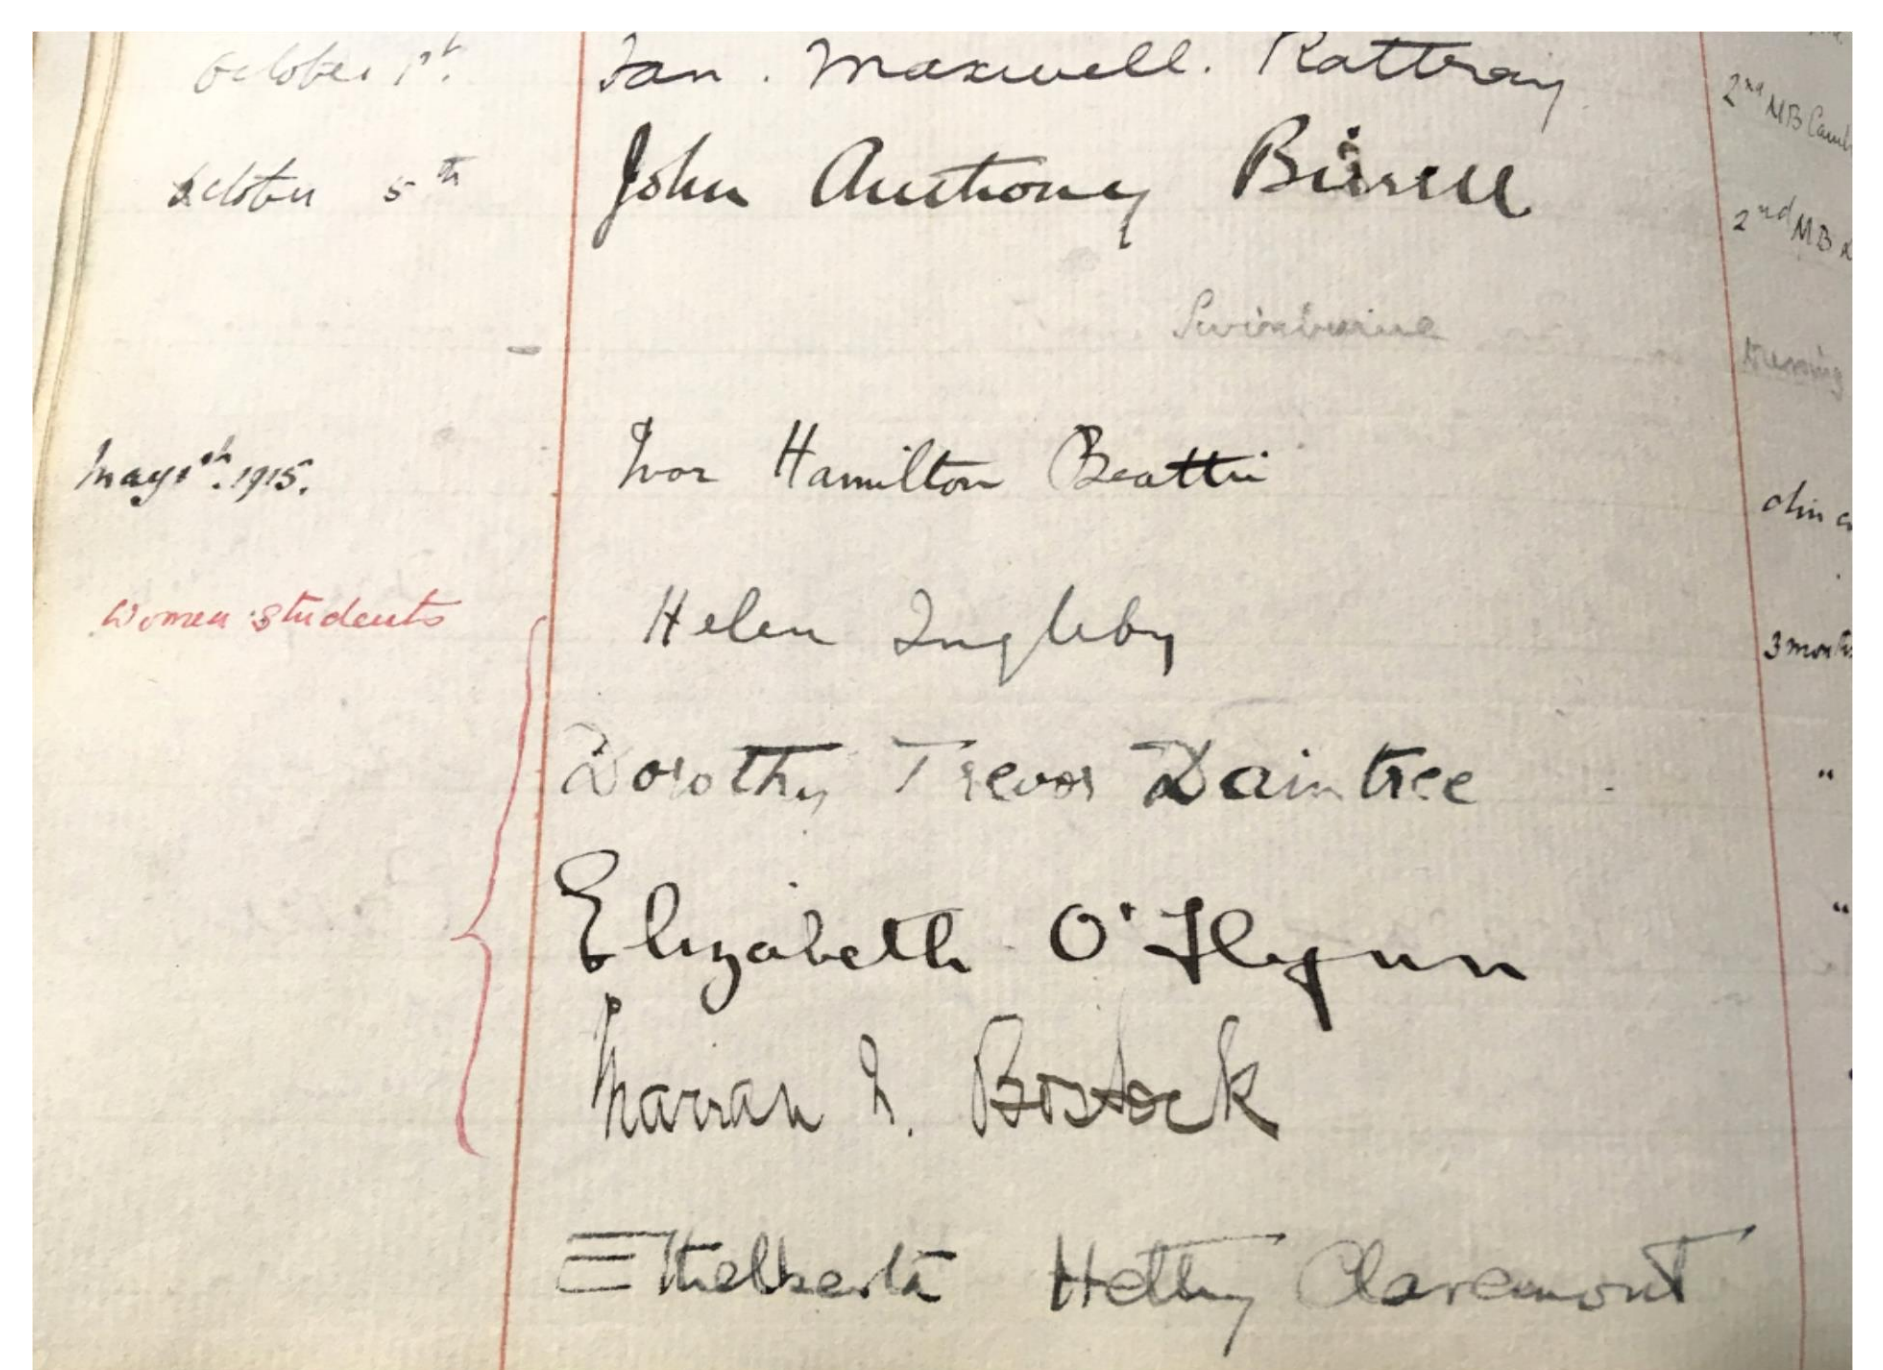 October 1st. Ian. Maxwell. Rattray 2nd MB Camb
October 5th John Anthony Birrell 2nd MB
Swinburne
May 1st. 1915. Ivor Hamilton Beattie
Women students Helen Ingleby 3 months
Dorothy Trevor Daintree "
Elizabeth O'Flynn "
Marian I. Bostock
Ethelberta Hetty Claremont